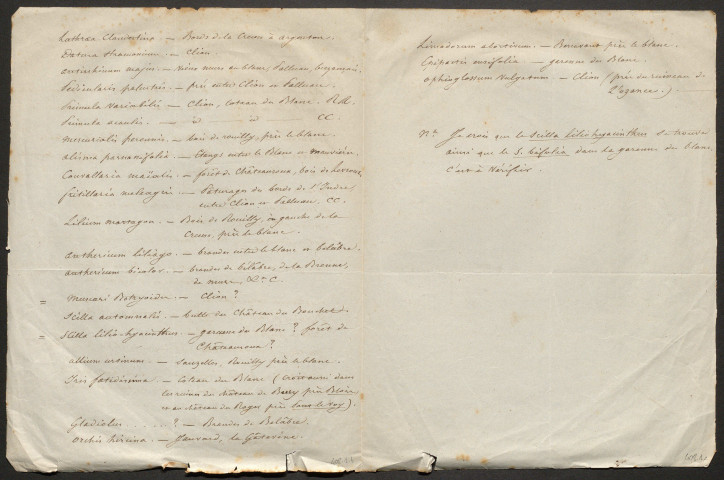 Lathrœa Clandestina. — Bords de la Creuse à argenton.
Datura stramonium. — Clion.
antirrhinum majus. — Vieux murs au blanc, Palluau, buzançais.
Pedicularis palustris. — près entre Clion et Palluau.
Primula Variabilis — Clion, coteau du Blanc. RR.
Primula acaulis. — id id CC.
mercurialis perennis. — bois de rouilly, près le blanc.
alisma parnassifolia. — Etangs entre le Blanc et
Convallaria maialis. — forêt de Châteauroux, bois de
fritillaria meleagris. — Pâturages des bords de l'Indre,
entre Clion et Palluau. CC.
Lilium martagon. — Bois de Rouilly, rive gauche de la
Creuse, près le blanc.
anthericum liliago. — brandes entre le blanc et belâbre.
anthericum bicolor. — brandes de belâbre, de la Brenne,
de &c C.
= muscari Botryoides. — Clion ?
Scilla automnalis. — butte du Château du Bouchet.
= Scilla lilio-hyacinthus. — garenne du Blanc ? forêt de
Châteauroux ?
allium ursinum. — Sauzelles, Rouilly près le blanc.
Iris fœtidissima. — Coteau du Blanc (croît aussi dans
les ruines du château de Bury près Blois
et au château du Rozay près
Gladiolus . . . . . ? — Brandes de Belâbre.
Orchis hircina. —
Limodorum abortivum. — près le blanc.
Epipactis ensifolia. — garenne du Blanc.
Ophioglossum Vulgatum. — Clion (près du ruisseau de
l'ozance.)
Nta Je crois que le Scilla lilio-hyacinthus se trouve
ainsi que le S. bifolia dans la garenne du blanc,
c'est à Vérifier.